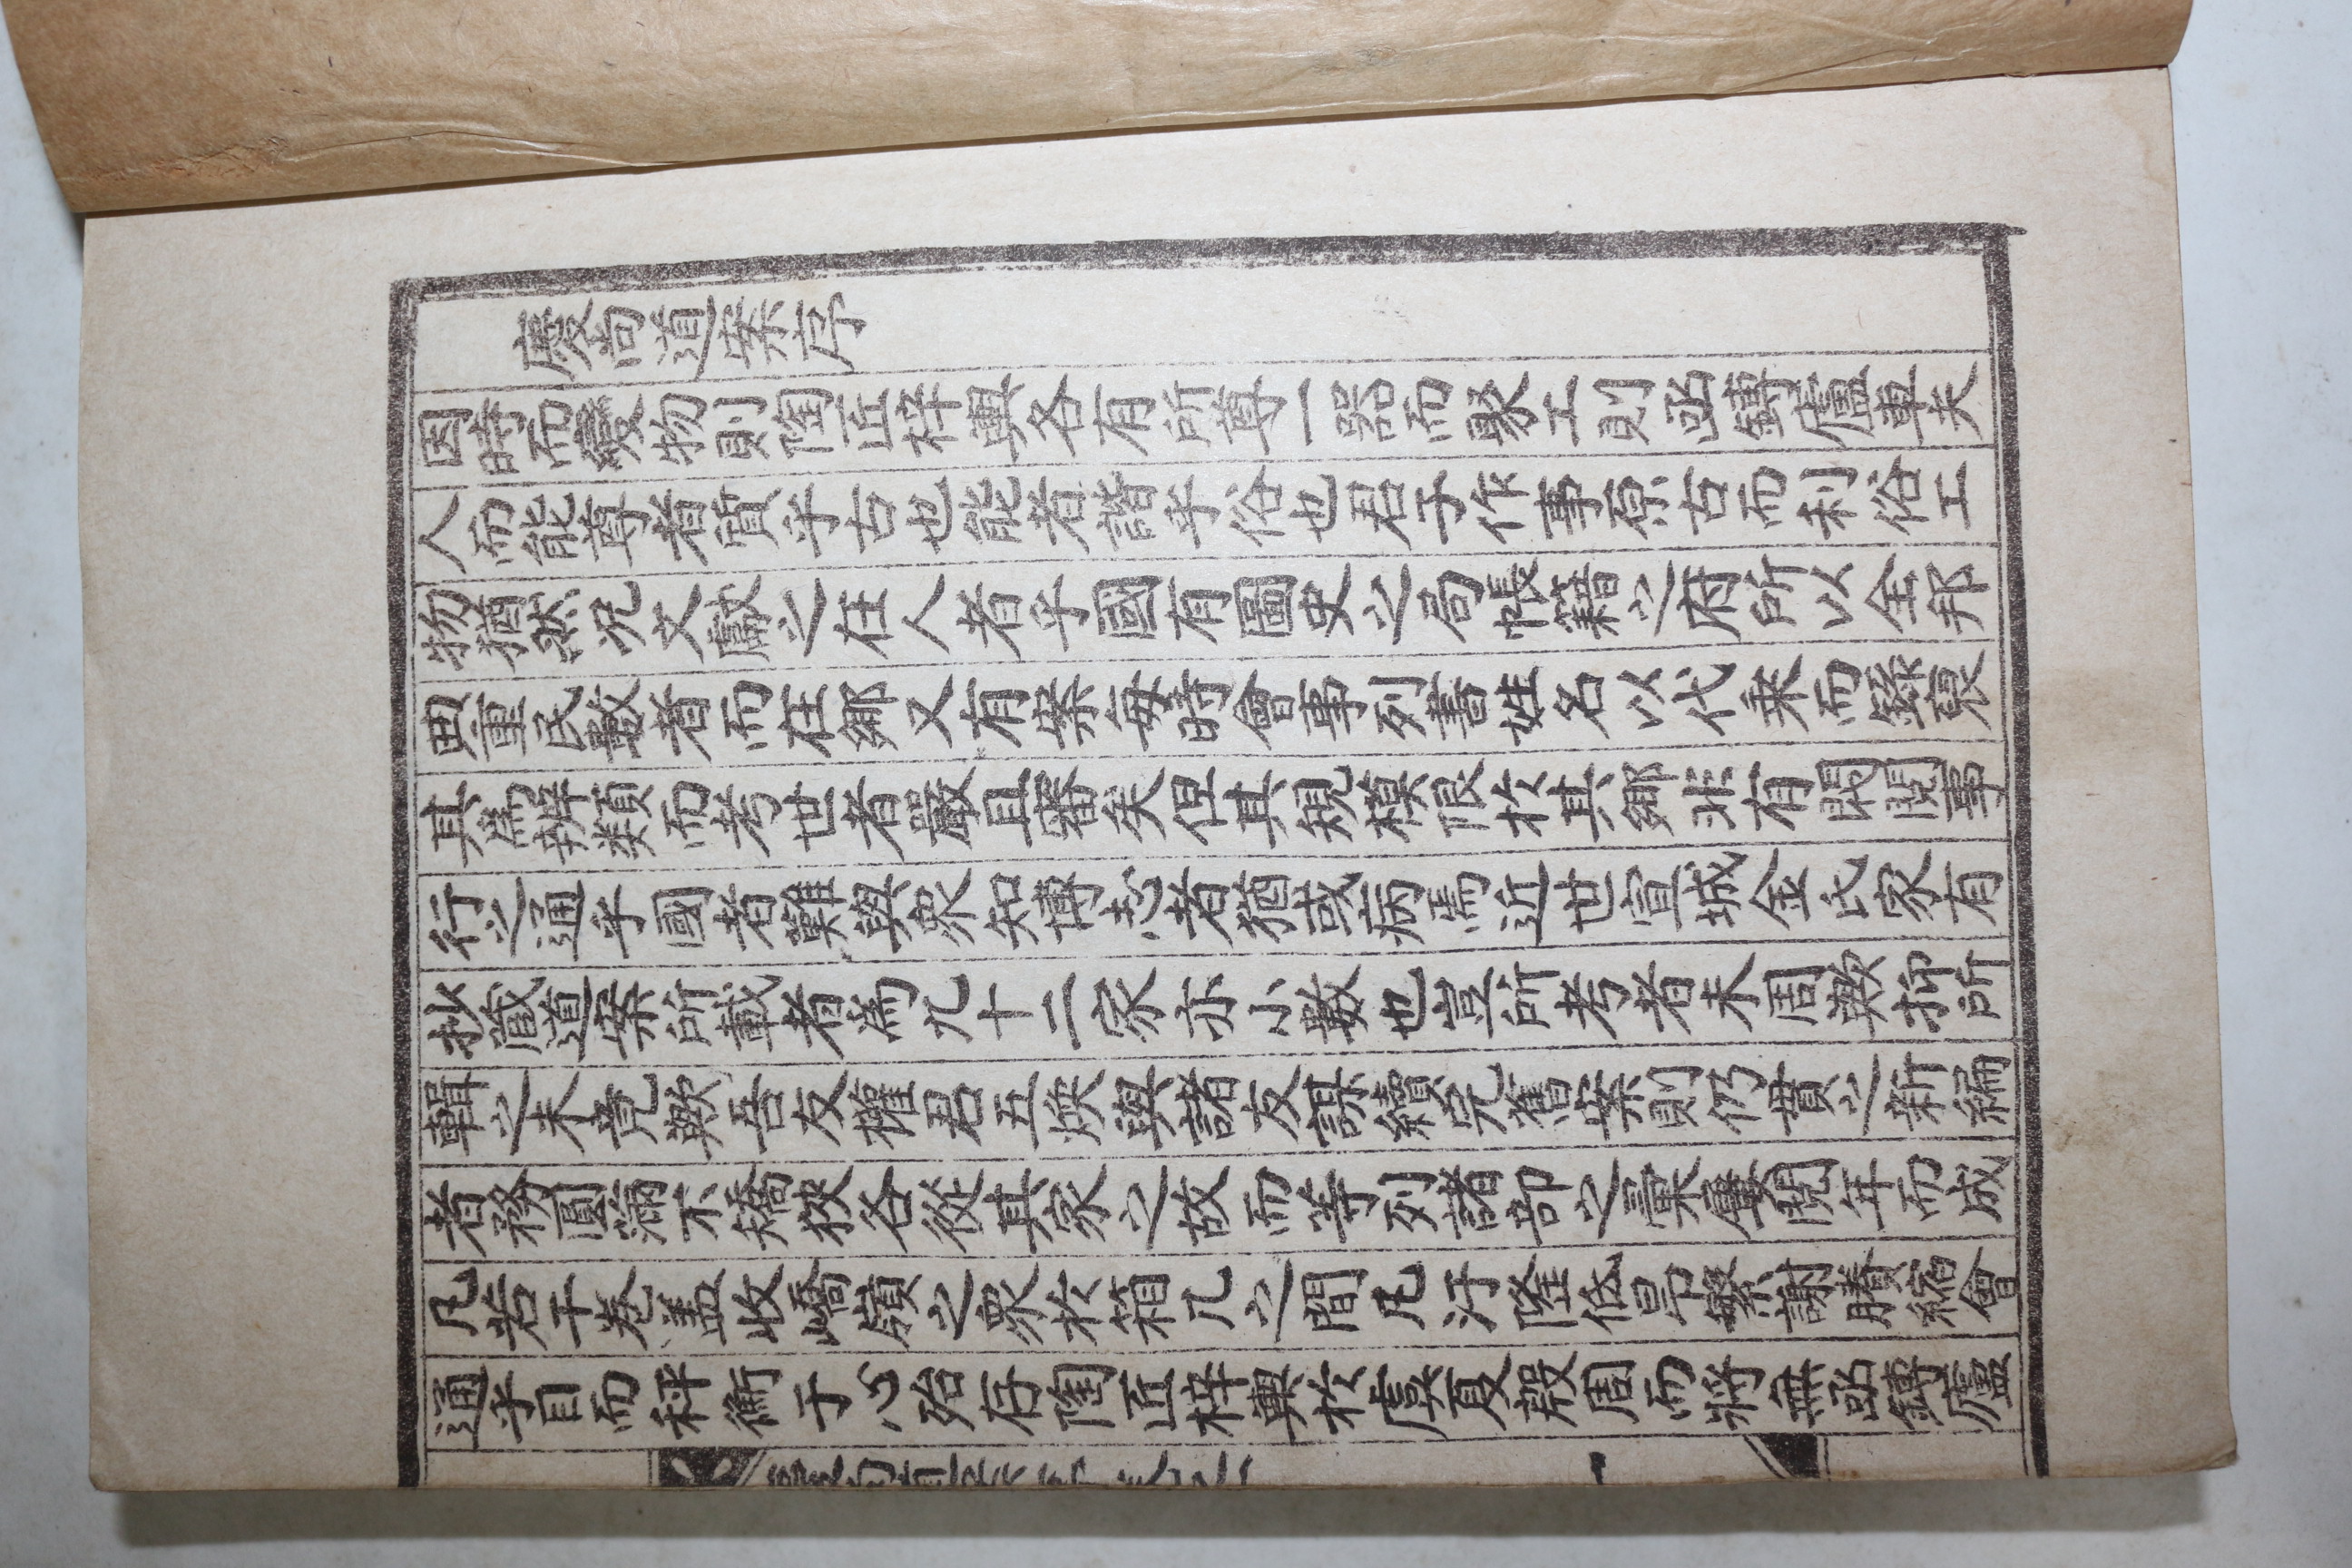 慶尚道案序
因時而變物則陶匠梓輿各有所尊一器而聚工則凾鎛廬車夫
人而能尊者質乎古也能者諧乎俗也君子作事原古而利俗工
物猶然况文獻之在人者乎國有圖史之局帳籍之府所以全邦
典重民數者而在鄉又有案每時會事列書姓名以代乘而錄裒
其爲辨類而考世者嚴且審矣但其規模限於其鄉非有閎閱事
行之通乎國者難與衆知博志者猶或病焉近世宣城金氏家有
抄蔵道案所載者爲九十二家亦小數也豈所考者未周歟抑所
輯之未竟歟吾友權君五煥與諸友謀續完舊案則仍貫之新編
者務圓蒲不矯狹各從其家之故而等列諸部之彙屢閱年而成
凡若干卷盖收嶠嶺之衆於箱几之間凡汙隆低昂繁謝賸縮會
通乎目而秤衡于心殆存陶匠梓輿於虞夏殷周而將無凾鎛廬
慶尚道案序 卷之一
一